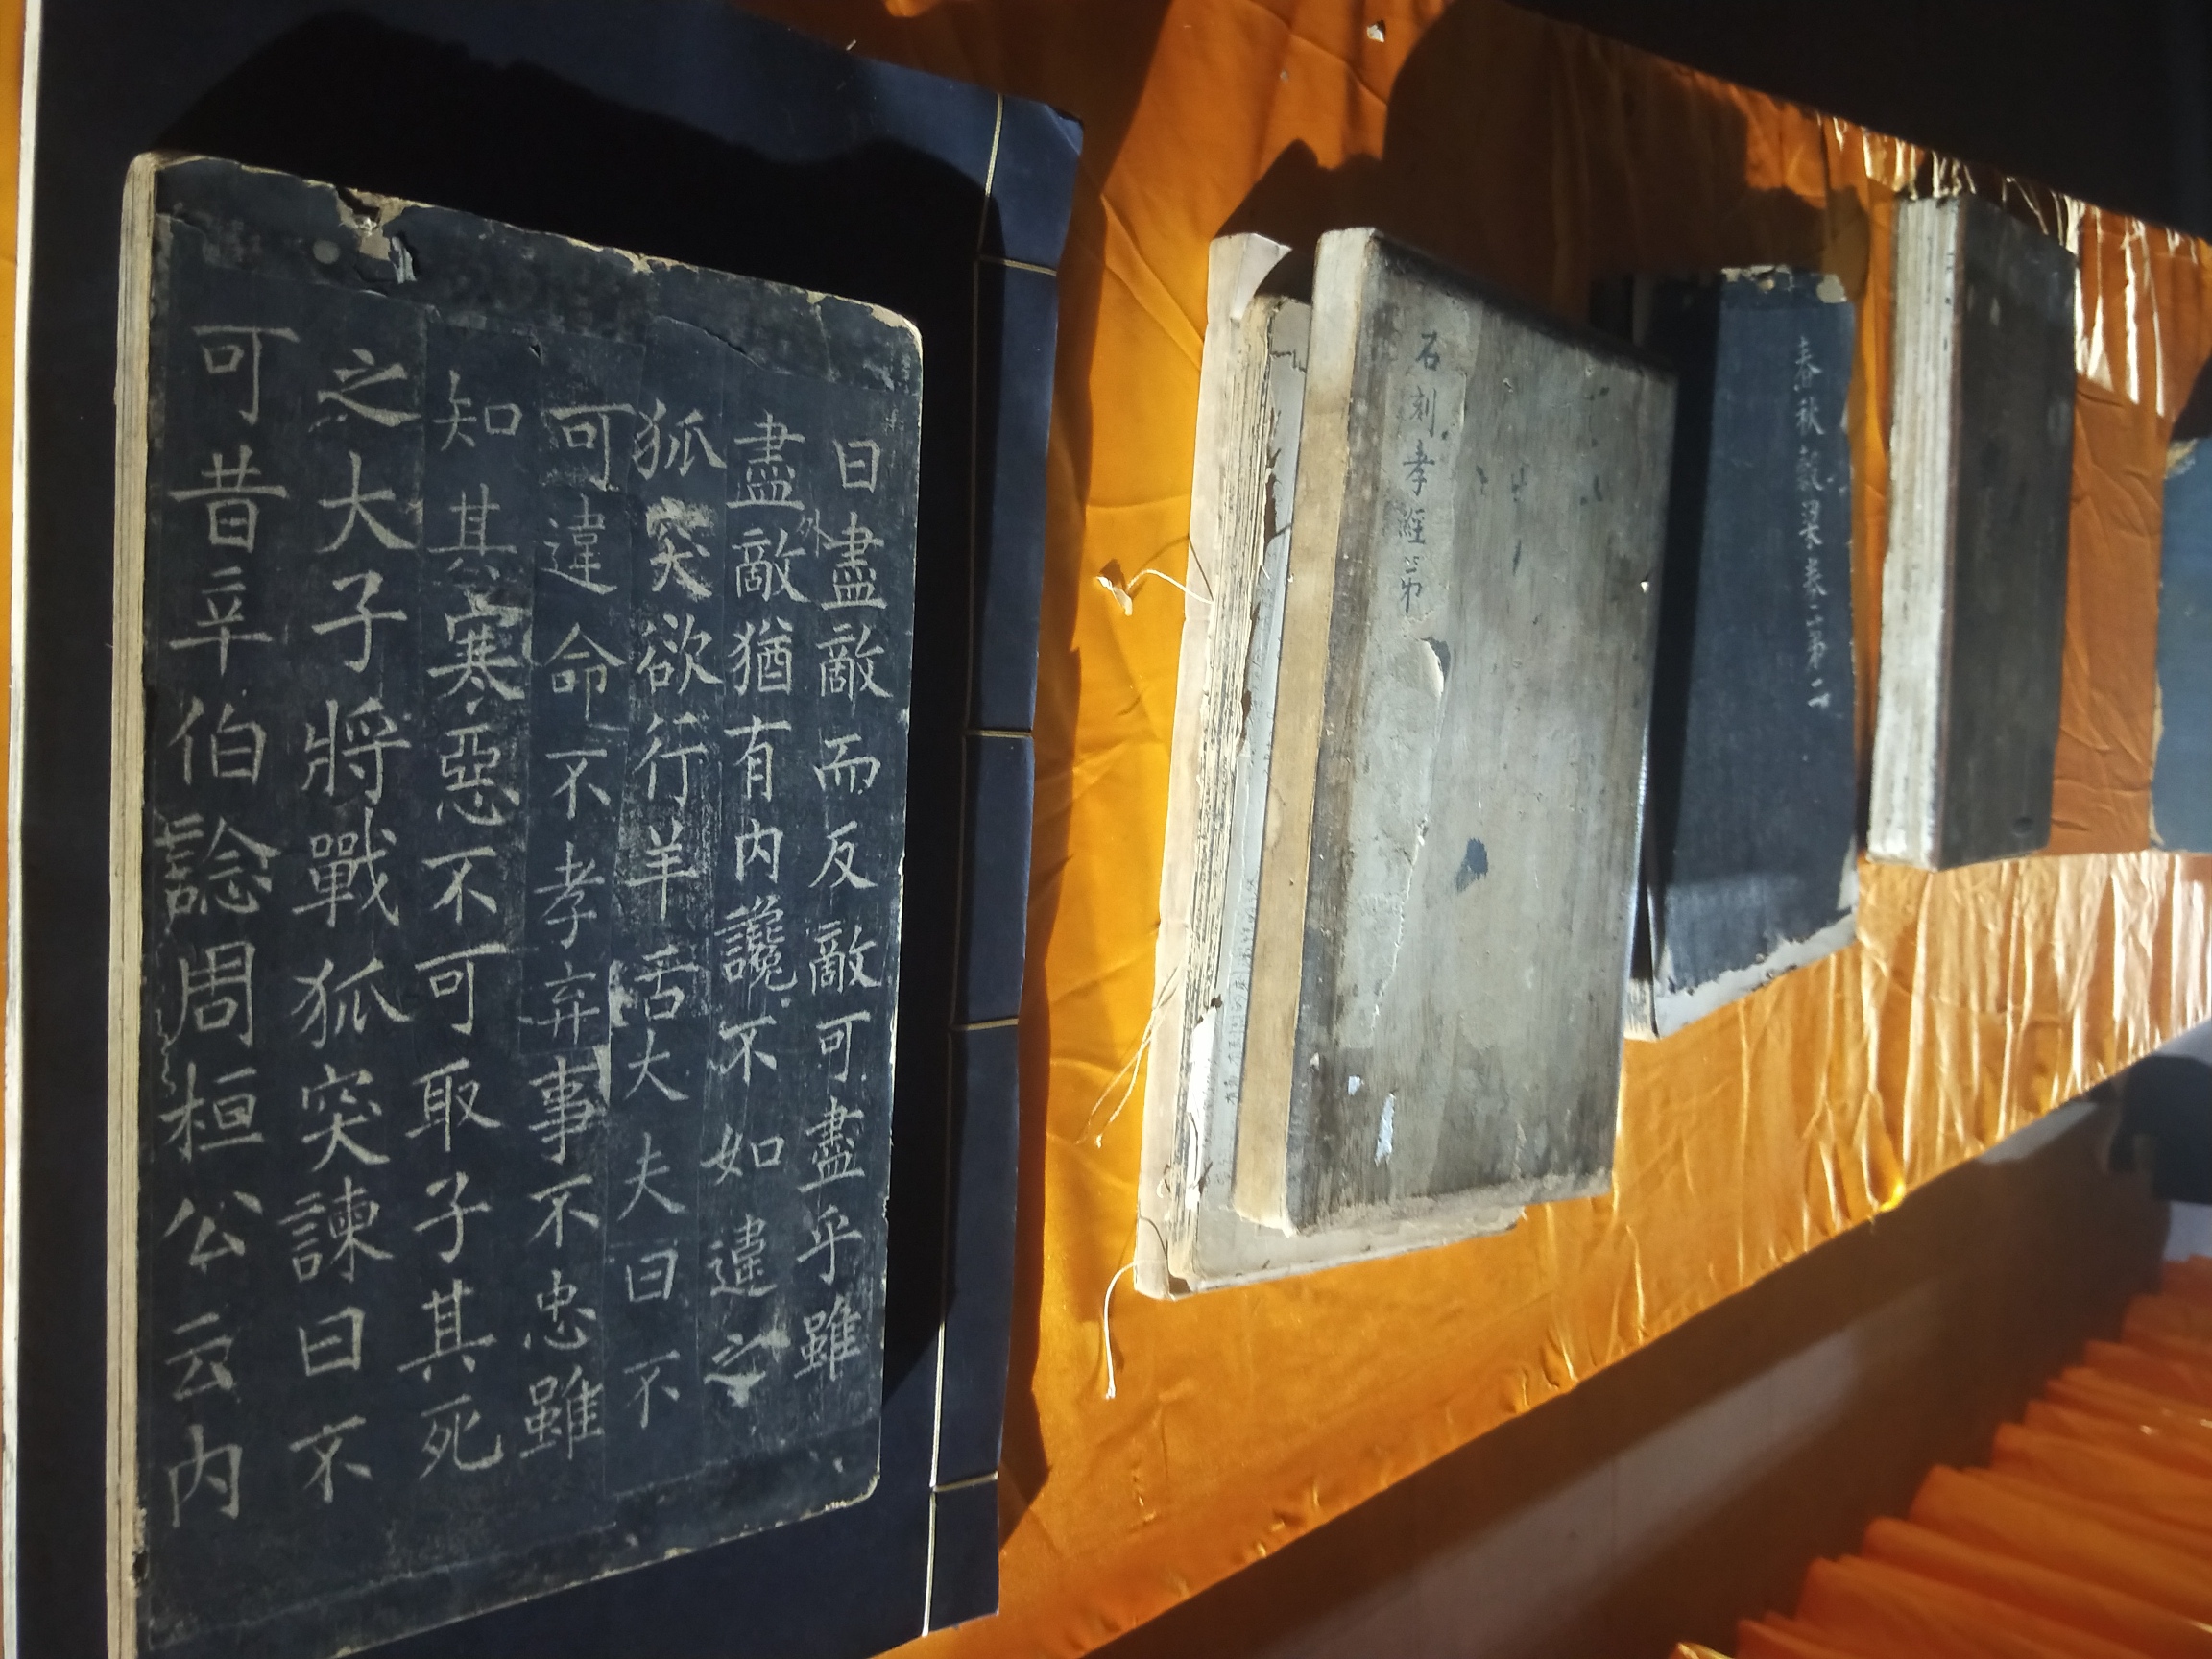 曰盡敵而反敵可盡乎雖
盡敵猶有内讒不如違之
外
狐突欲行羊舌大夫曰不
可違命不孝弃事不忠雖
知其寒惡不可取子其死
之大子將戰狐突諫曰不
可昔辛伯諗周桓公云内
石刻孝經
春秋穀梁卷二第二